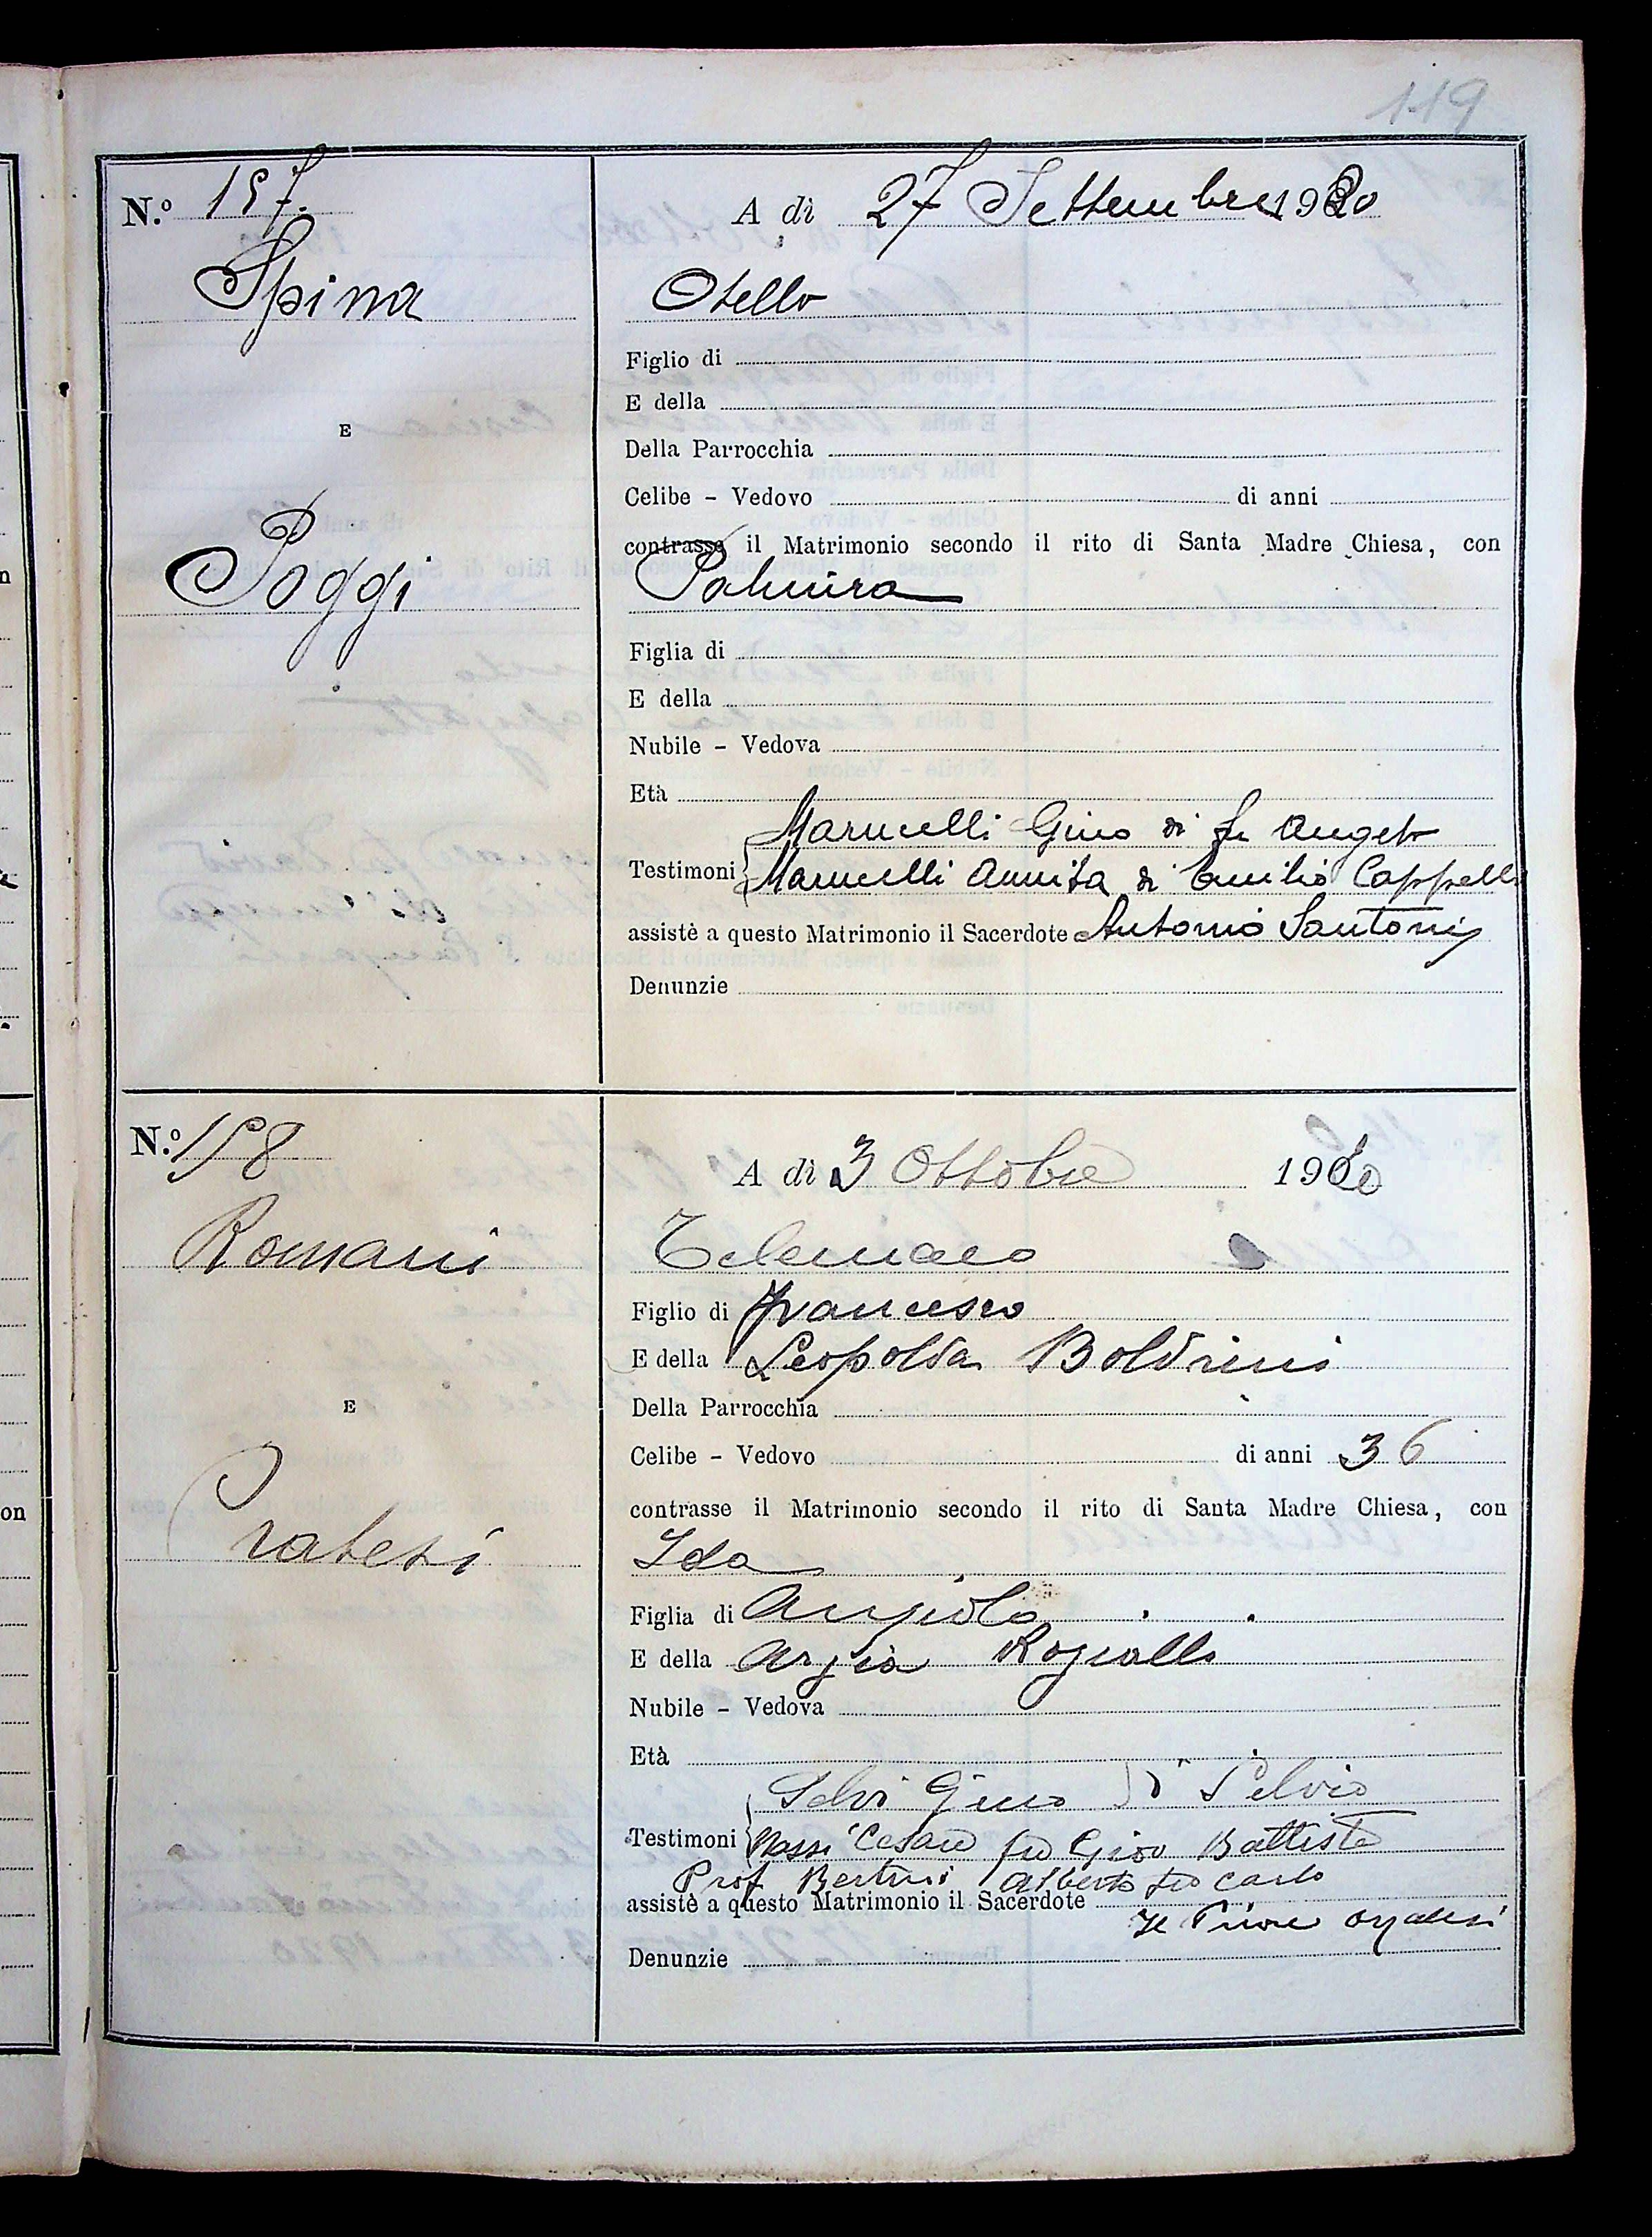 119
N.º 157.
A dì 27 Settembre 1920
Spina
Otello
Figlio di
E della
E
Della Parrocchia
Celibe - Vedovo di anni
contrasse il Matrimonio secondo il rito di Santa Madre Chiesa, con
Poggi
Palmira
Figlia di
E della
Nubile - Vedova
Età
Marucelli Gino di fu Angelo
Testimoni Marucelli Annita di Emilio Cappelli
assistè a questo Matrimonio il Sacerdote Antonio Santoni
Denunzie
N.º 158
A dì 3 Ottobre 1920
Romani
Telemaco
Figlio di Francesco
E della Leopolda Boldrini
E
Della Parrocchia
Celibe - Vedovo di anni 36
contrasse il Matrimonio secondo il rito di Santa Madre Chiesa, con
Pratesi
Ida
Figlia di Angiolo
E della Argia
Nubile - Vedova
Età
Selvi Gino di Silvio
Testimoni Cesare fu Giov Battista
Prof Bertini Alberto fu Carlo
assistè a questo Matrimonio il Sacerdote
Il Priore
Denunzie
on